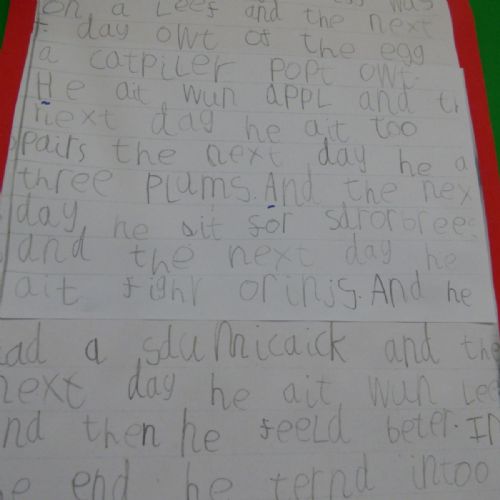 on a Leef and the next
day owt of the egg
a catpiler popt owt.
He ait wun appl and
next day he ait too
pairs the next day he a
three plums. And the nex
day he ait for sdrorbrees
and the next day he
ait fighr orinjs. And he
ad a sdumicaick and the
next day he ait wun Lee
nd then he feeld beter. In
e end he ternd intoo